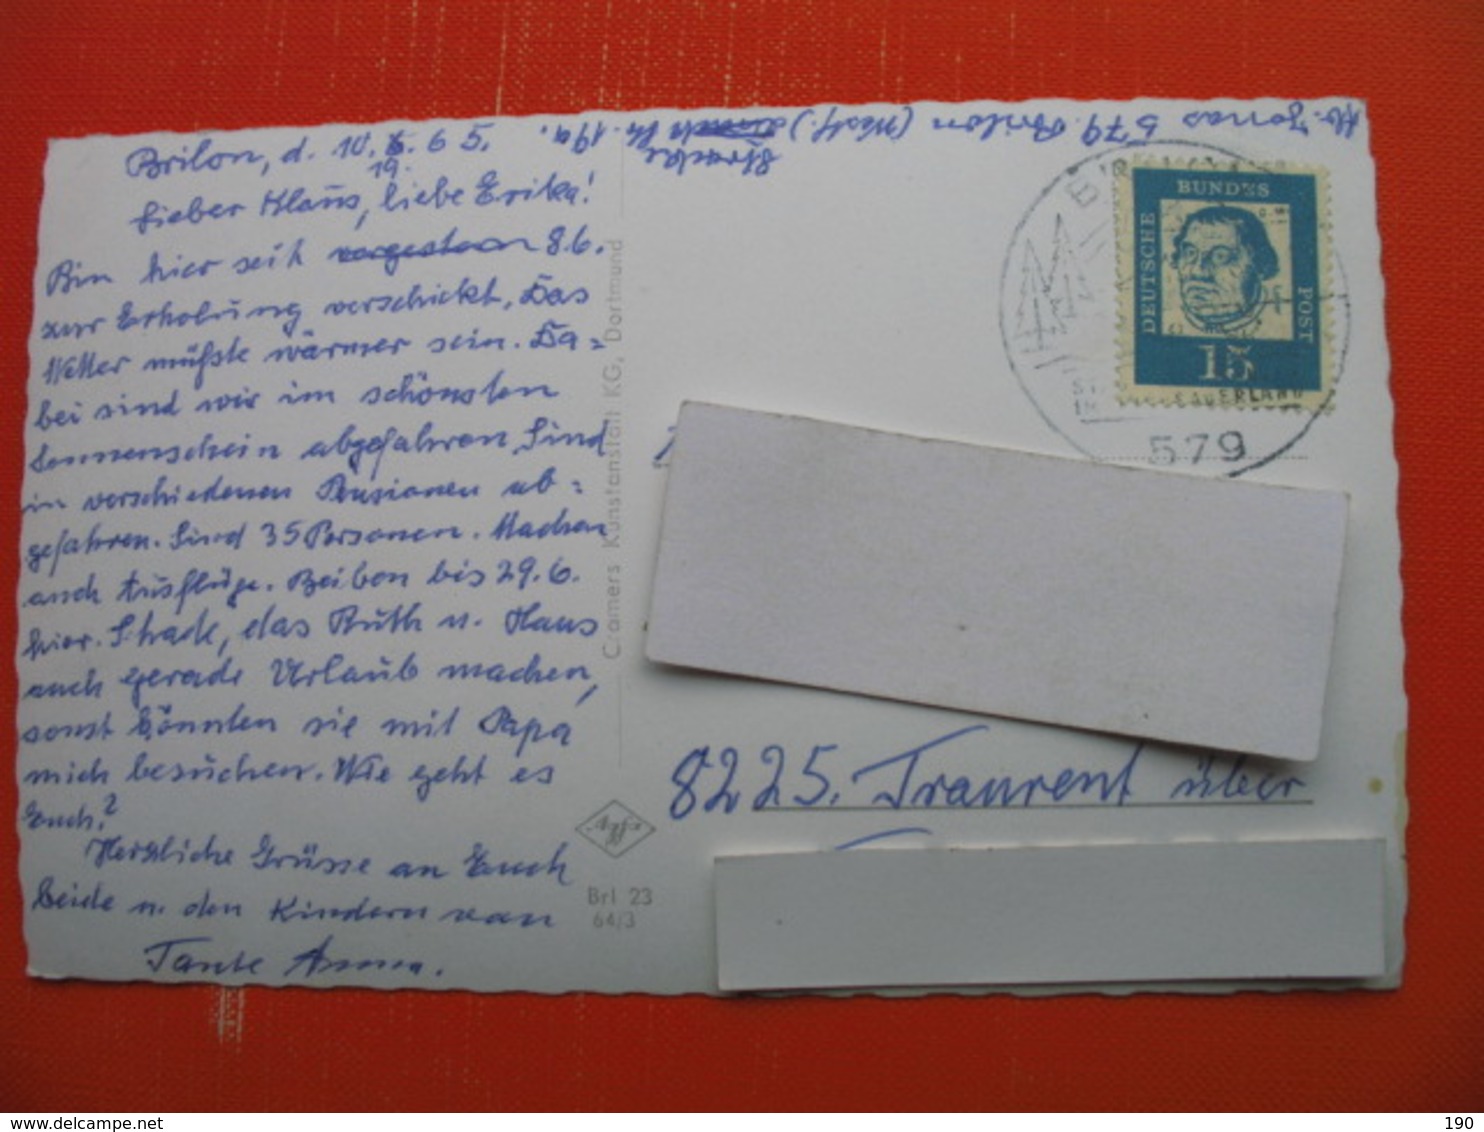 Brilon, d. 10.6.65.
19.
Lieber Klaus, liebe Erika!
Bin hier seit vorgestern 8.6.
zur Erholung verschickt. Das
Wetter müßte wärmer sein. Da=
bei sind wir im schönsten
Sonnenschein abgefahren. Sind
in verschiedenen Pensionen ab=
gefahren. Sind 35 Personen. Machen
auch Ausflüge. Beiben bis 29.6.
hier. Schade, das Ruth u. Hans
auch gerade Urlaub machen,
sonst könnten sie mit Papa
mich besuchen. Wie geht es
Euch?
Herzliche Grüsse an Euch
beide u. den Kindern von
Tante Anna.
Jonas 579 Brilon (Westf.)
19a.
Cramers Kunstanstalt KG, Dortmund
Brl 23
64/3
DEUTSCHE
BUNDES
POST
15
SAUERLAND
579
8225. Traunreut über
delcampe.net
190